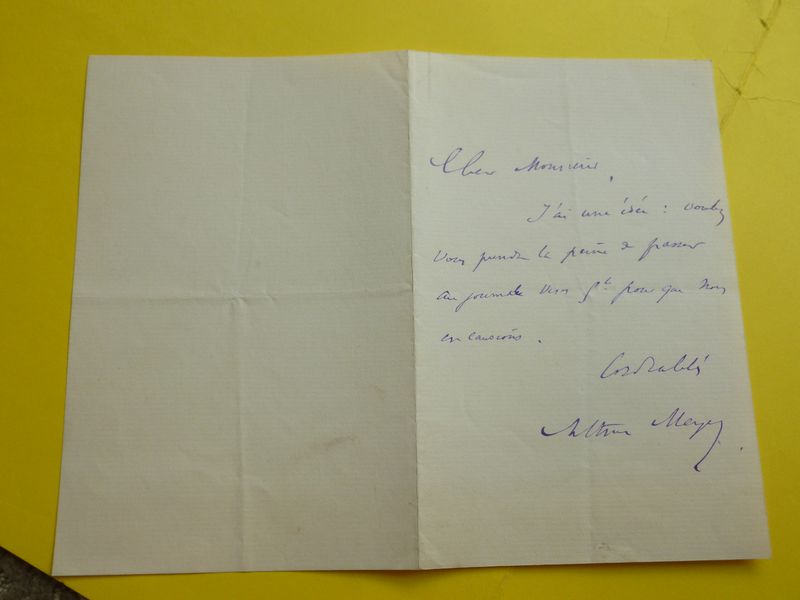 Cher Monsieur,
J'ai une idée : voulez
vous prendre la peine de passer
au journal vers 5h pour que nous
en causions.
Cordialités
Arthur Meyer